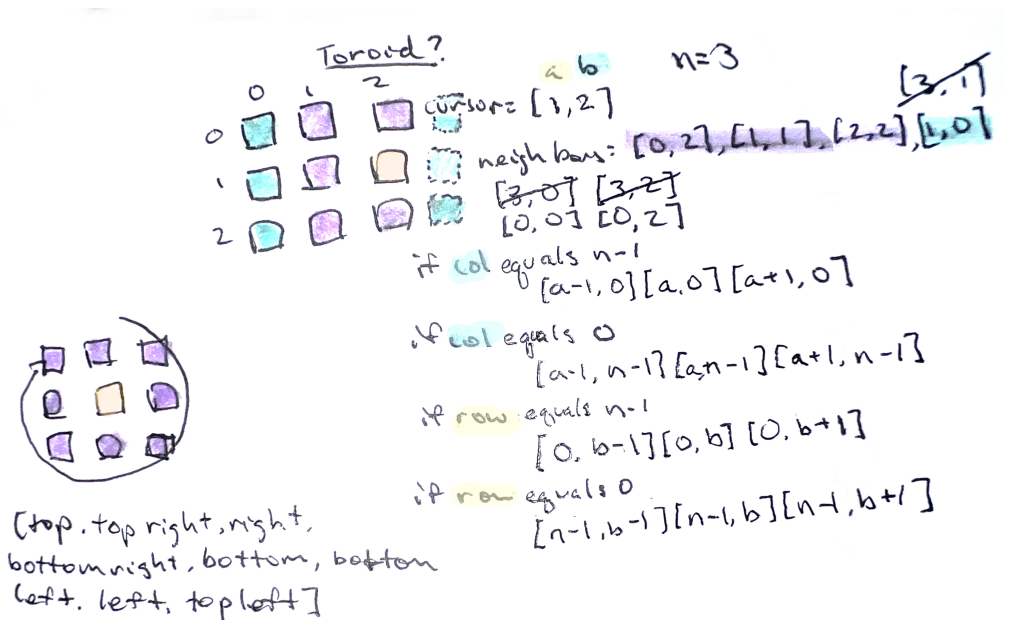 Toroid?
a b
n=3
0 1 2
cursor= [1,2]
[3,1]
0
neighbors: [0,2],[1,1],[2,2],[1,0]
1
[3,0] [3,2]
[0,0] [0,2]
2
if col equals n-1
[a-1,0][a,0][a+1,0]
if col equals 0
[a-1, n-1][a,n-1][a+1, n-1]
if row equals n-1
[0, b-1][0,b] [0, b+1]
if row equals 0
[n-1,b-1][n-1,b][n-1,b+1]
[top, top right, right,
bottom right, bottom, bottom
left, left, top left]